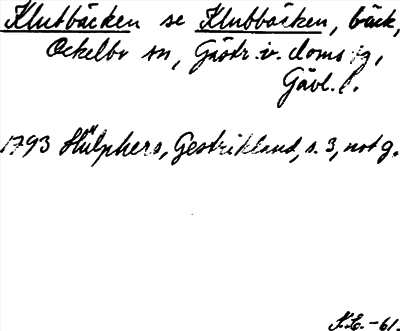 Klutbäcken se Klubbäcken, bäck,
Ockelbo sn, Gästr. v. doms.g,
Gävl. l.
1793 Hülphers, Gestrikland, s. 3, not g.
K.L. -61.